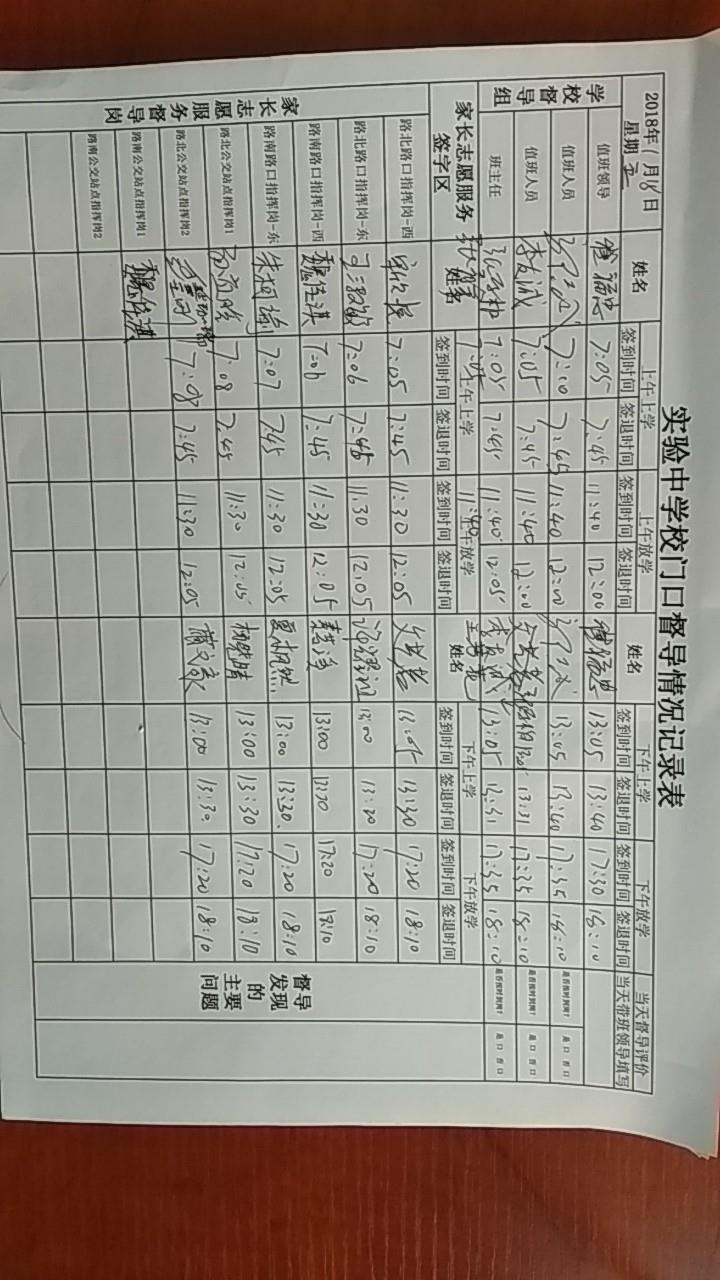 实验中学校门口督导情况记录表
2018年11月16日 星期五 姓名 上午上学 上午放学 姓名 下午上学 下午放学 当天督导评价
签到时间 签退时间 签到时间 签退时间 签到时间 签退时间 签到时间 签退时间 当天带班领导填写
学校督导组
值班领导 7:05 7:45 11:40 12:00 13:05 13:40 17:30 18:10
值班人员 7:10 7:45 11:40 12:00 13:05 13:40 17:35 18:10 是否按时到岗? 是 口 否 口
值班人员 李友诚 7:05 7:45 11:40 12:00 13:31 17:35 18:10 是否按时到岗? 是 口 否 口
班主任 7:05 7:45 11:40 12:05 李友诚 13:05 13:31 17:35 18:10 是否按时到岗? 是 口 否 口
家长志愿服务签字区 姓名 上午上学 上午放学 姓名 下午上学 下午放学
签到时间 签退时间 签到时间 签退时间 签到时间 签退时间 签到时间 签退时间
家长志愿服务督导岗
路北路口指挥岗-西 7:05 7:45 11:30 12:05 13:05 13:30 17:20 18:10
路北路口指挥岗-东 7:06 7:45 11:30 12:05 13:00 13:30 17:20 18:10
路南路口指挥岗-西 魏佳淇 7:06 7:45 11:30 12:05 13:00 13:30 17:20 18:10
路南路口指挥岗-东 7:07 7:45 11:30 12:05 13:00 13:30 17:20 18:10
路北公交站点指挥岗1 7:08 7:45 11:30 12:05 杨晓晴 13:00 13:30 17:20 18:10
路北公交站点指挥岗2 7:08 7:45 11:30 12:05 13:00 13:30 17:20 18:10
路南公交站点指挥岗1 魏佳淇
路南公交站点指挥岗2
督导发现的主要问题